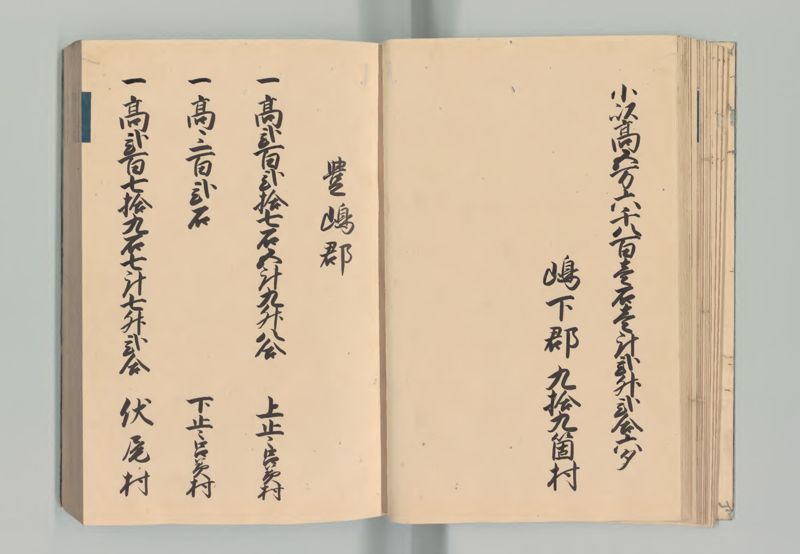 小以高五万六千八百壱石壱斗弐升弐合六夕
嶋下郡 九拾九箇村
豊嶋郡
一高弐百弐拾七石五斗九升八合 上止々呂美村
一高三百弐石 下止々呂美村
一高弐百七拾九石七斗七升弐合 伏尾村